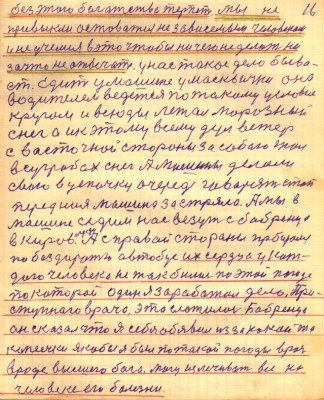 без этого богатства терпят мы не 16
привыкли оставатся не зависемым человеком
и не учемся в это чтобы ничего не делать ни
за что не отвечать. у нас такое дело быва-
ст. Едит у машине у маскvичи она
водителем ведётся по такому условие
кругом и всюды летал морозный
снег а ик этому всему дул ветер
с васточной стороны за собою
в сугробах снег. А машины делали
свою в цепочку очередь гаварят стой
передния машина застряла. А мы в
машине сидим нас везут с бабренцо
в киров. А с правай стараны
по бездарожъ автобус их сердца у каж-
дого человека не так билис по этой погоде
по которой один я зарабатал дело. При-
ступнаго врача. Это слотилось Бабренцо
ан сказал что я себя обявил из за какой то
капеечки якобы я был по такой погоды врач
вроде высшего бога. могу излечивать все на
человеке его болезни.